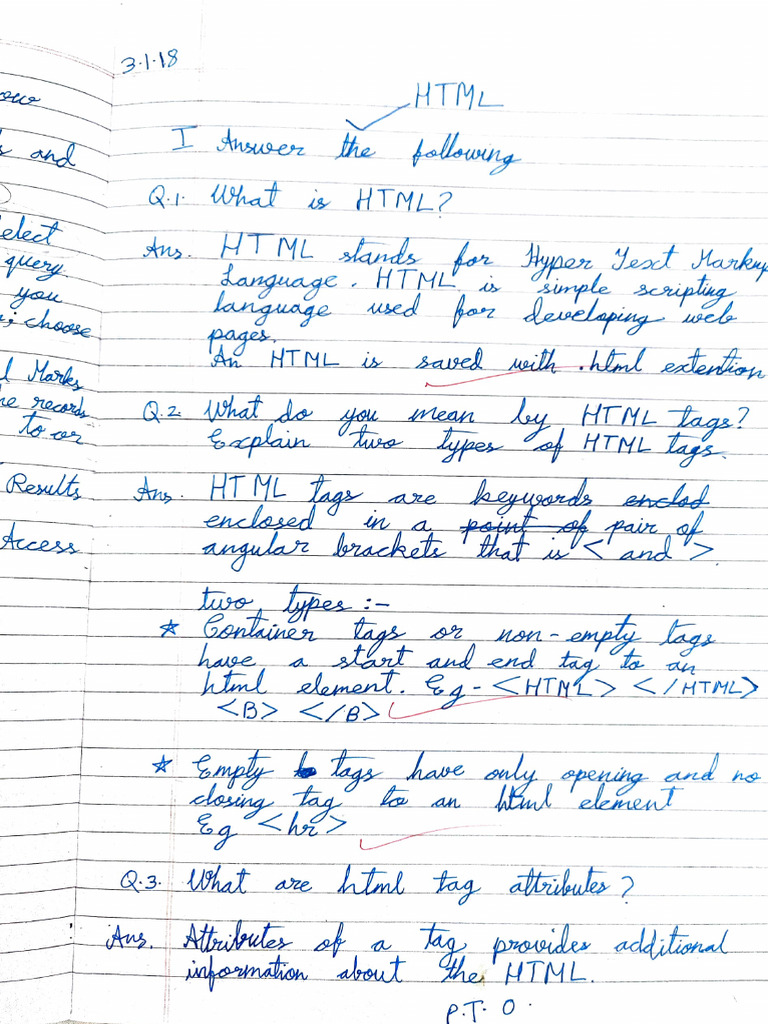 ow
s and
elect
query.
you
; choose
l Marks
he records
to or
Results
Access
3.1.18
HTML
I Answer the following
Q.1. What is HTML?
Ans. HTML stands for Hyper Text Markup
Language. HTML is simple scripting
language used for developing web
pages.
An HTML is saved with .html extention
Q.2. What do you mean by HTML tags?
Explain two types of HTML tags.
Ans. HTML tags are keywords enclod
enclosed in a point of pair of
angular brackets that is < and >
two types :-
* Container tags or non-empty tags
have a start and end tag to an
html element. Eg - <HTML> </HTML>
<B> </B>
* Empty tags have only opening and no
closing tag to an html element
Eg <hr>
Q.3. What are html tag attributes?
Ans. Attributes of a tag provides additional
information about the HTML.
P.T. O.